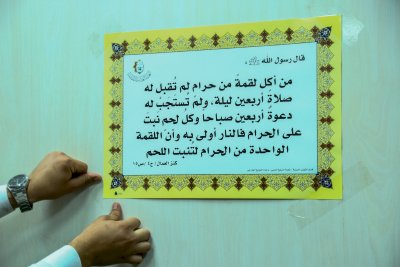 قال رسول الله ﷺ
من أكل لقمة من حرام لم تُقبل له
صلاة أربعين ليلة، ولم تستجب له
دعوةُ أربعين صباحا وكل لحم نبت
على الحرام فالنار أولى به وأن اللقمة
الواحدة من الحرام لتُنبت اللحم
كنز العمال / ج٤ / ص١٥